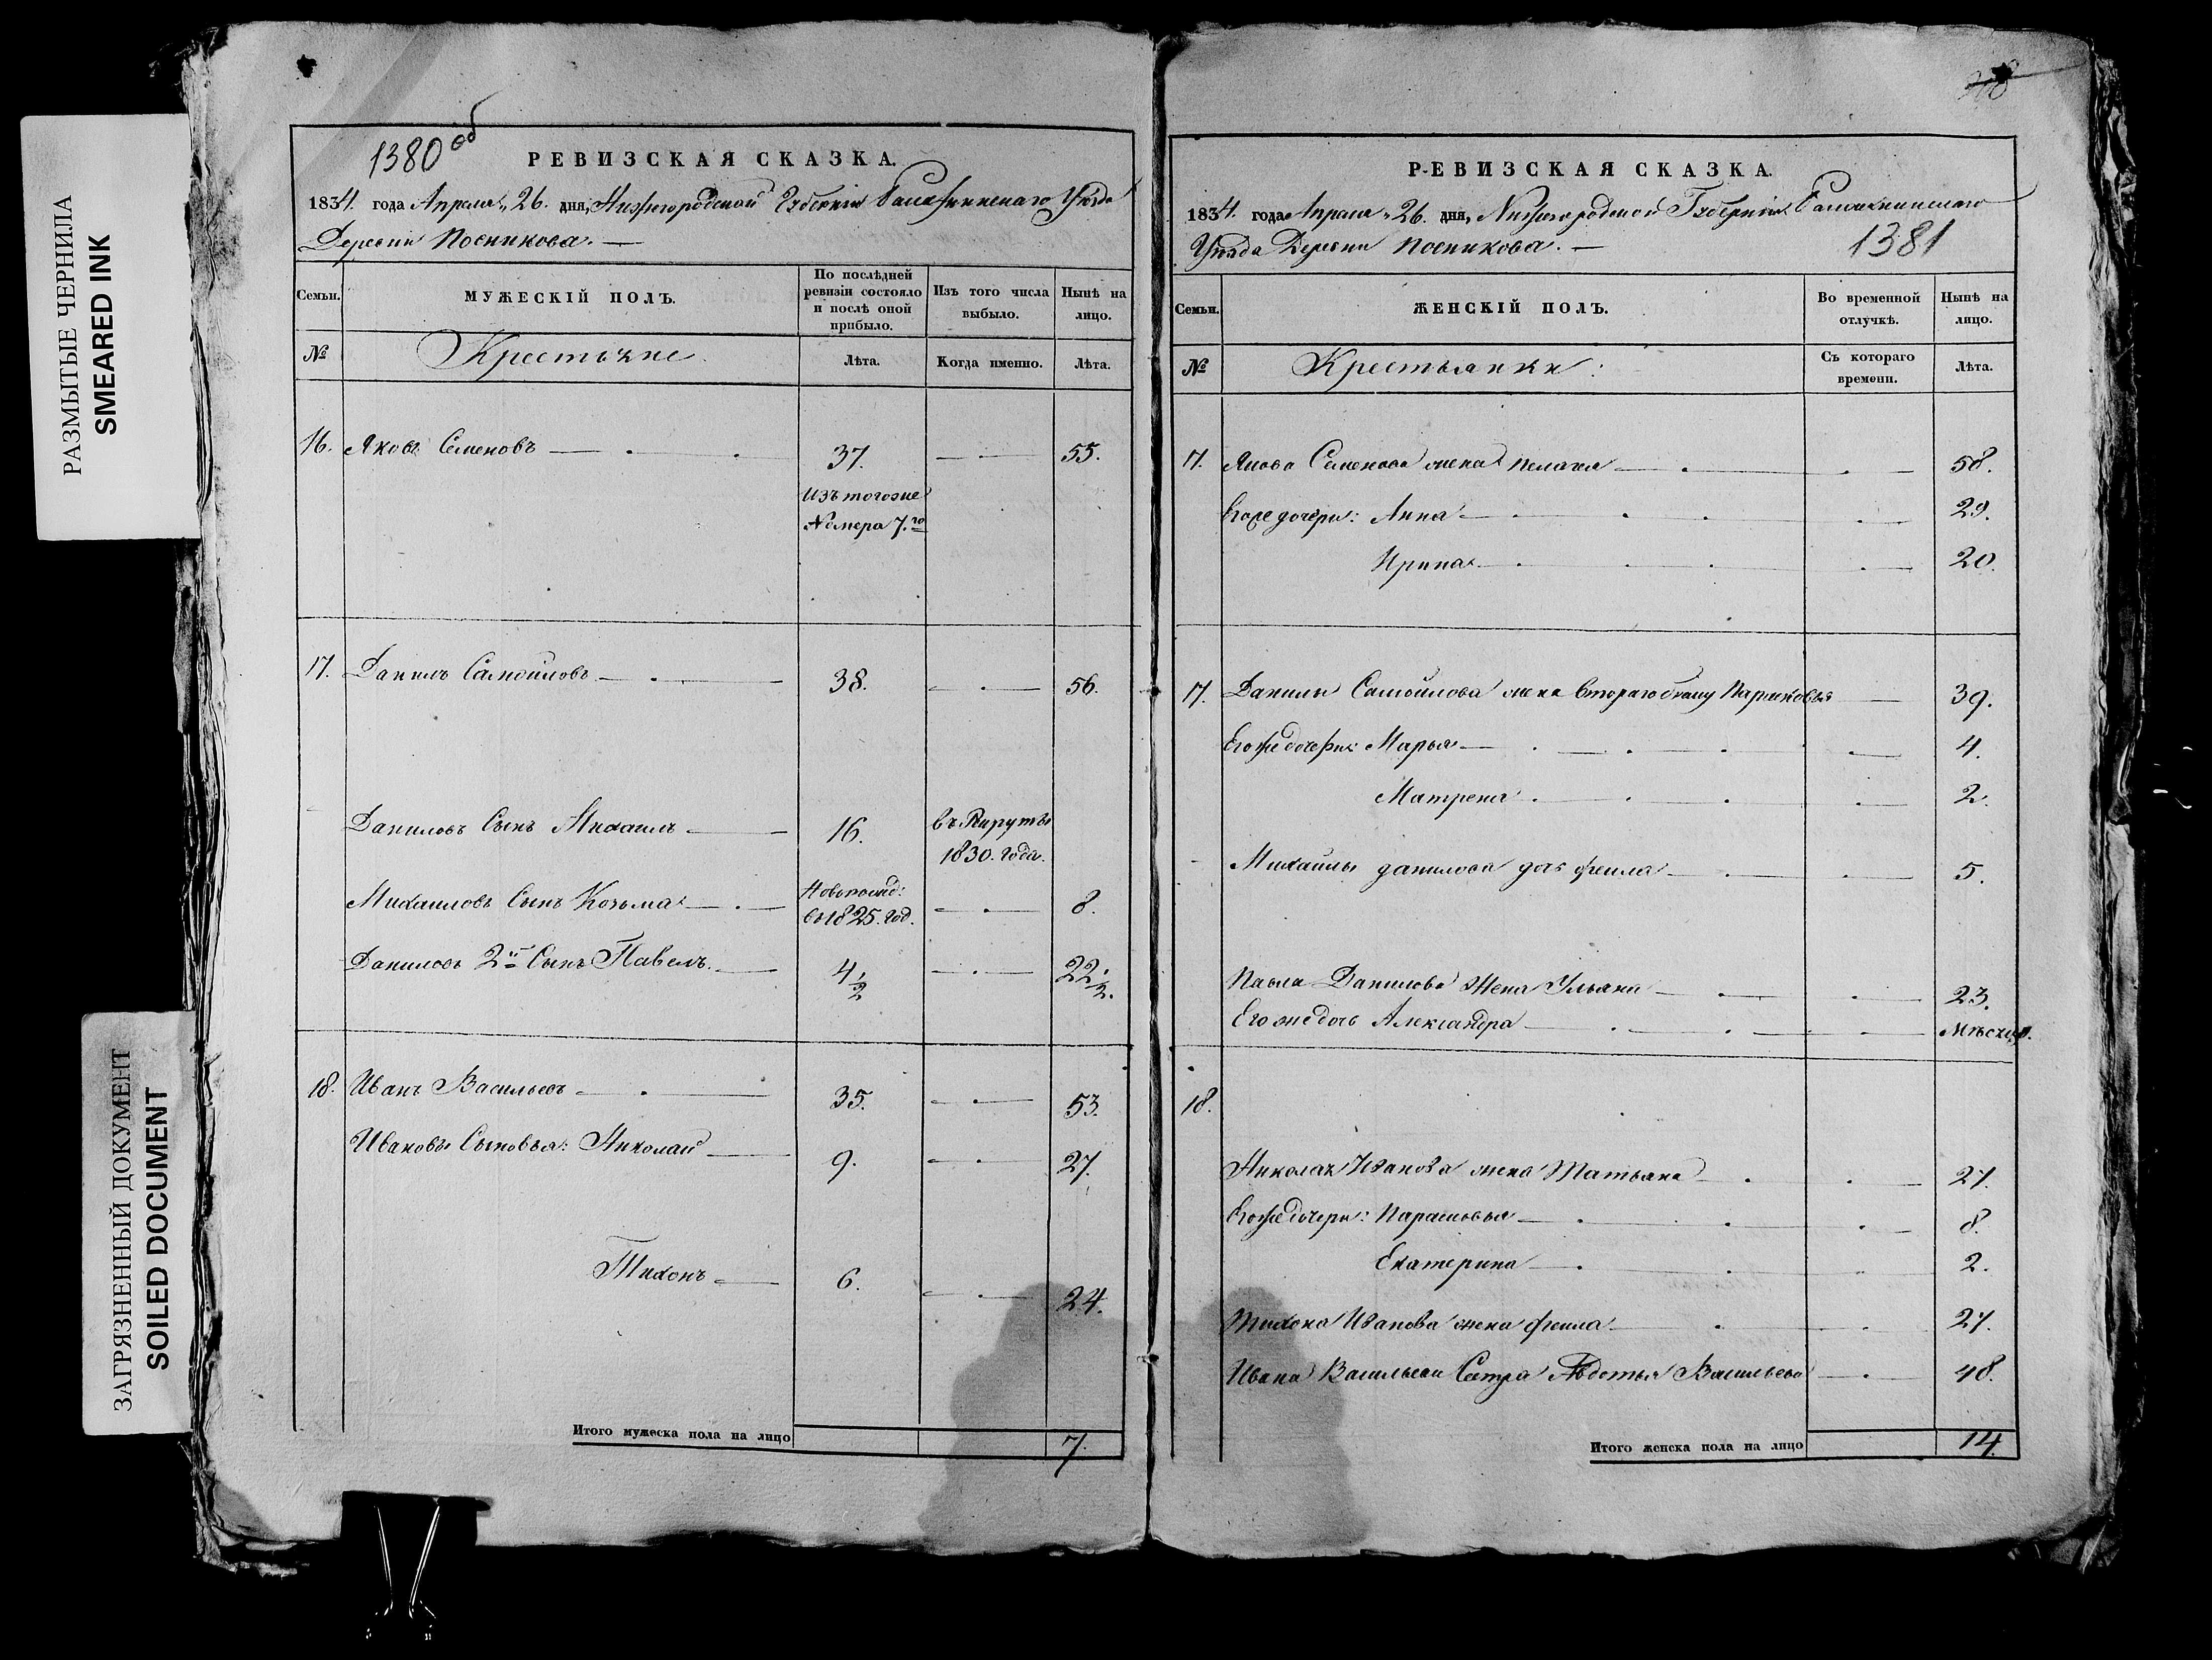 РАЗМЫТЫЕ ЧЕРНИЛА
SMEARED INK
ЗАГРЯЗНЕННЫЙ ДОКУМЕНТ
SOILED DOCUMENT
1380 об
РЕВИЗСКАЯ СКАЗКА.
1834. года Апреля 26. дня, Нижегородской Губернии Балахнинскаго Уѣзда
Деревни Посникова.
Семьи.
МУЖЕСКІЙ ПОЛЪ.
По послѣдней ревизіи состояло и послѣ оной прибыло.
Изъ того числа выбыло.
Нынѣ на лицо.
№
Крестьяне
Лѣта.
Когда именно.
Лѣта.
16. Яковъ Семеновъ 37. 55.
Изъ тогоже
Номера 7.го
17. Данилъ Самойловъ 38. 56.
Даниловъ Сынъ Михаилъ 16. въ Рекруты
1830. года.
Михаиловъ Сынъ Козьма Новорожд:
въ 1825. год. 8.
Даниловъ 2й Сынъ Павелъ 4 1/2 22 1/2.
18. Иванъ Васильевъ 35. 53.
Ивановы Сыновья: Николай 9. 27.
Тихонъ 6. 24.
Итого мужеска пола на лицо 7.
РЕВИЗСКАЯ СКАЗКА.
1834. года Апреля 26. дня, Нижегородской Губернии Балахнинскаго
Уѣзда Деревни Посникова.
1381
Семьи.
ЖЕНСКІЙ ПОЛЪ.
Во временной отлучкѣ.
Нынѣ на лицо.
№
Крестьянки:
Съ котораго времени.
Лѣта.
17. Якова Семенова жена Пелагея 58.
Егоже дочери: Анна 29.
Ирина 20.
17. Данилы Самойлова жена втораго браку Парасковья 39.
Егоже дочери: Марья 4.
Матрена 2.
Михайлы данилова дочь фекла 5.
Павла Данилова Жена Ульяна 23.
Его же дочь Александра
18.
Николая Иванова жена Татьяна 27.
Егоже дочери: Парасковья 8.
Екатерина 2.
Тихона Иванова жена фекла 27.
Ивана Васильева Сестра Авдотья Васильева 48.
Итого женска пола на лицо 14.